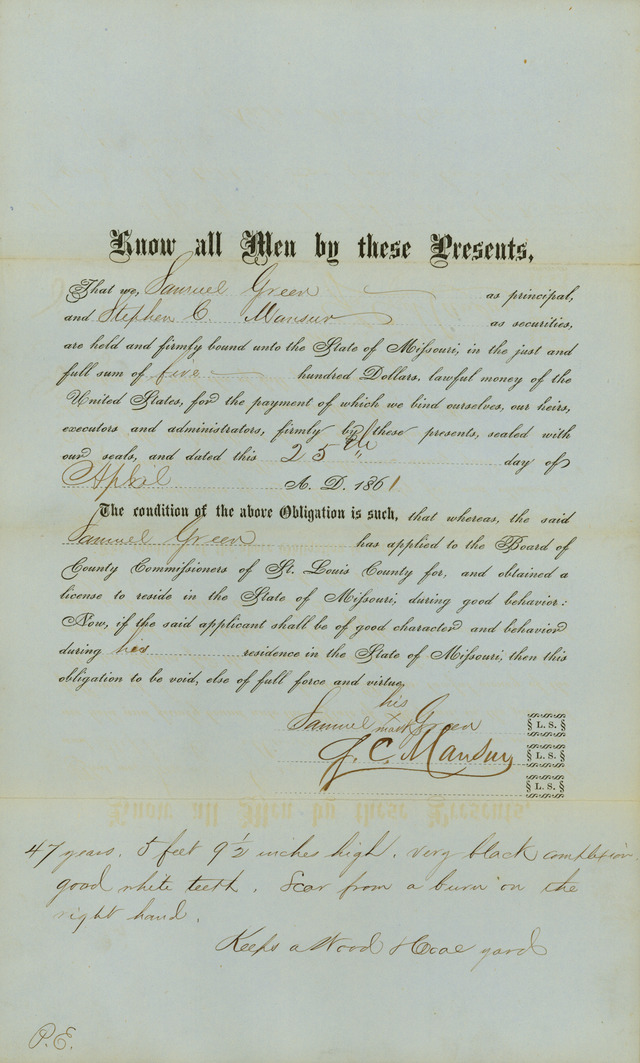 Know all Men by these Presents,
That we, Samuel Green as principal,
and Stephen C. Mansur as securities,
are held and firmly bound unto the State of Missouri, in the just and
full sum of five hundred Dollars, lawful money of the
United States, for the payment of which we bind ourselves, our heirs,
executors and administrators, firmly by these presents, sealed with
our seals, and dated this 25th day of
April A. D. 1861
The condition of the above Obligation is such, that whereas, the said
Samuel Green has applied to the Board of
County Commissioners of St. Louis County for, and obtained a
license to reside in the State of Missouri, during good behavior:
Now, if the said applicant shall be of good character and behavior
during his residence in the State of Missouri, then this
obligation to be void, else of full force and virtue.
his
Samuel X Green L. S.
mark
S. C. Mansur L. S.
L. S.
47 years. 5 feet 9 1/2 inches high. very black complexion
good white teeth. Scar from a burn on the
right hand.
Keeps a Wood & Coal yard
P.E.